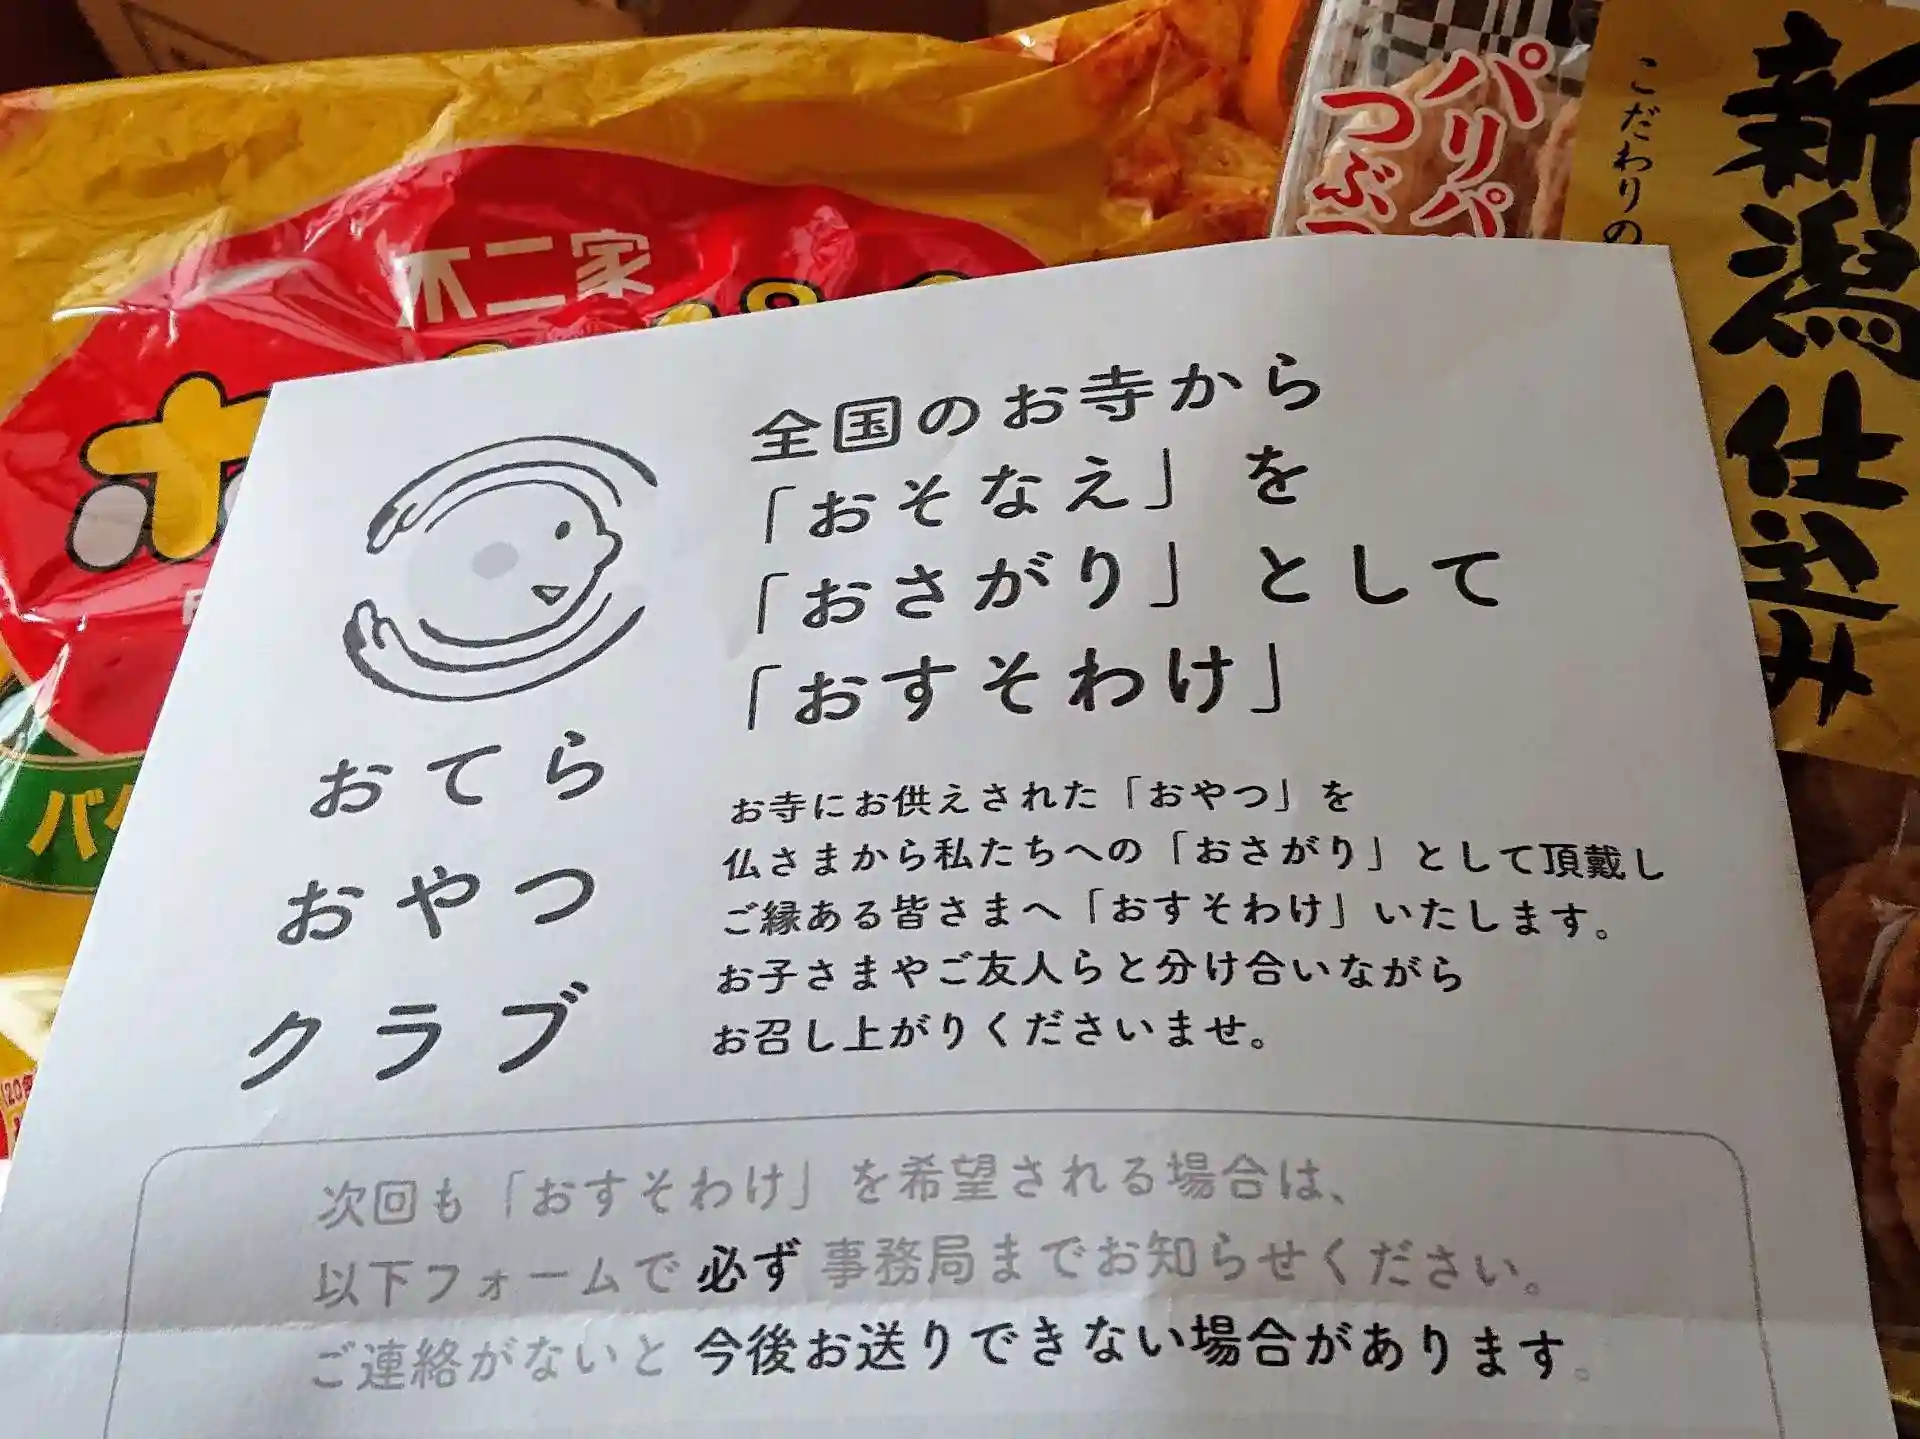 不二家
パリパリ
こだわりの
新潟仕込み
全国のお寺から
「おそなえ」を
「おさがり」として
「おすそわけ」
おてら
おやつ
クラブ
お寺にお供えされた「おやつ」を
仏さまから私たちへの「おさがり」として頂戴し
ご縁ある皆さまへ「おすそわけ」いたします。
お子さまやご友人らと分け合いながら
お召し上がりくださいませ。
次回も「おすそわけ」を希望される場合は、
以下フォームで必ず事務局までお知らせください。
ご連絡がないと今後お送りできない場合があります。